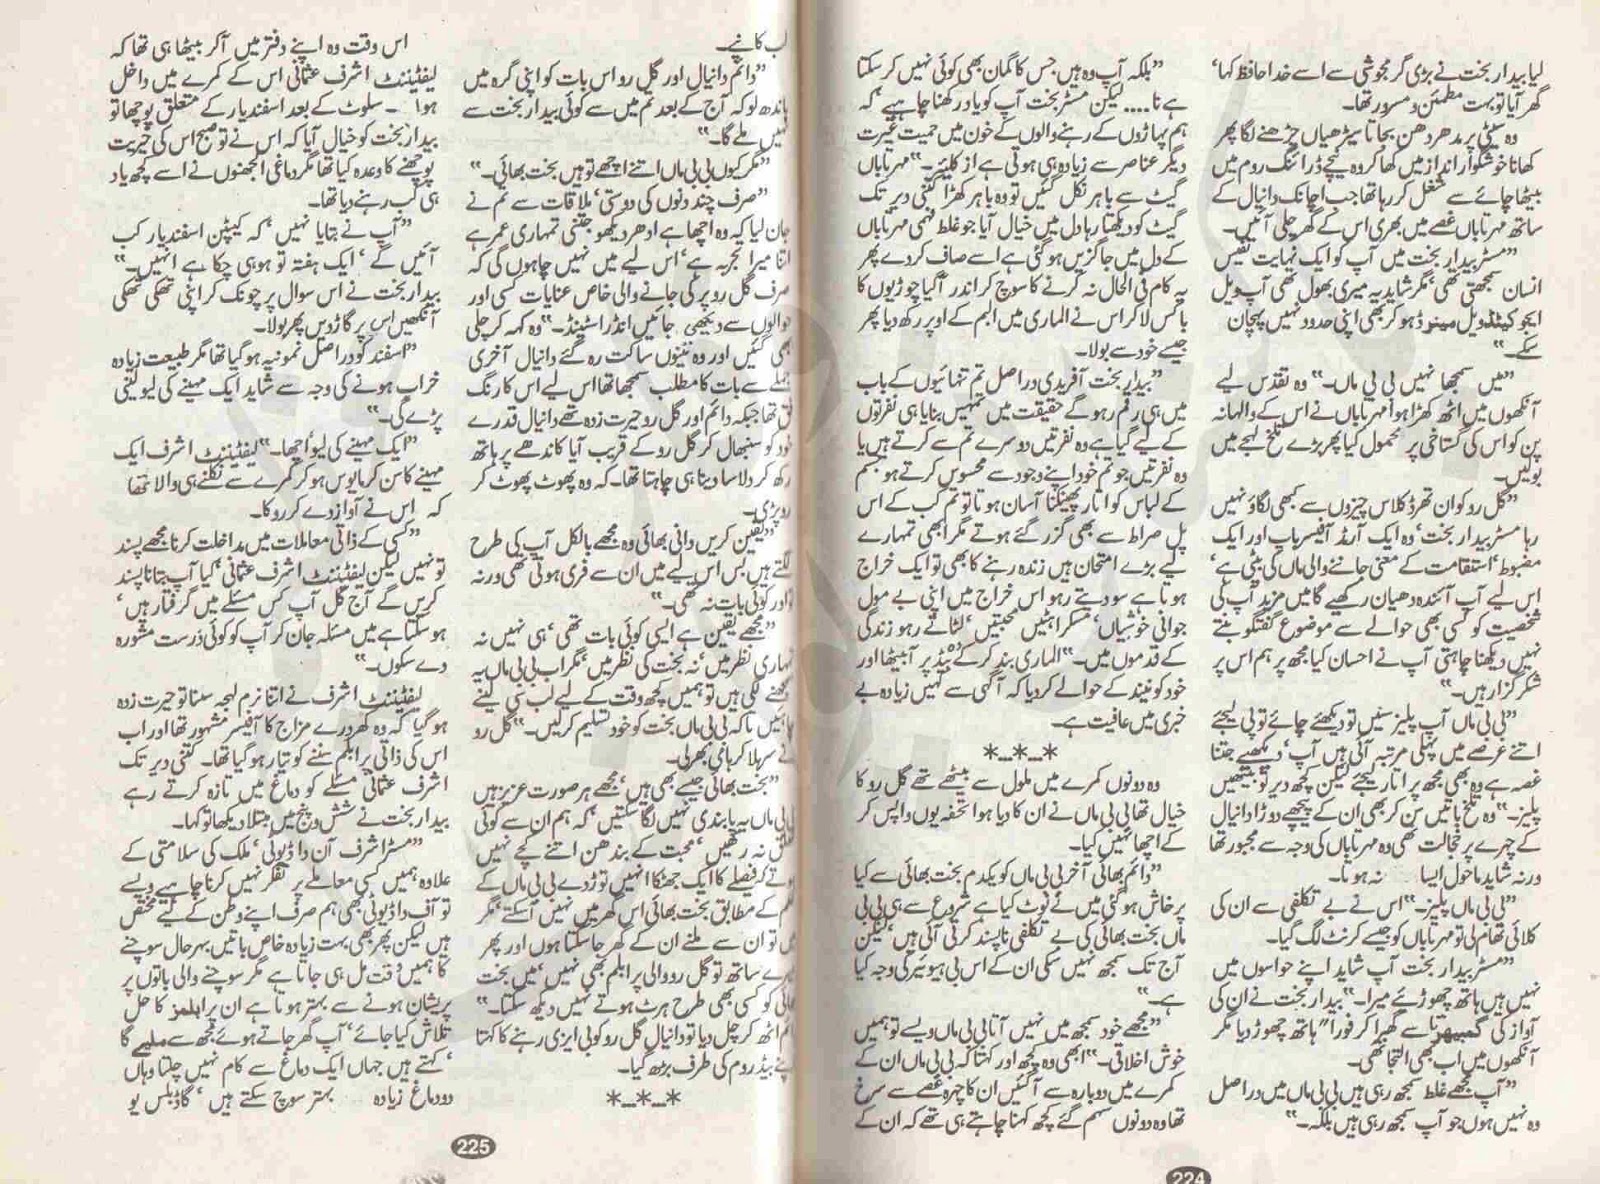 لیا بیدار بخت نے بڑی گرمجوشی سے اسے خدا حافظ کہا،
گھر آیا تو بہت مطمئن و مسرور تھا۔
وہ سیٹی پر مدھر دھن بجاتا سیڑھیاں چڑھنے لگا پھر
کھانا خوشگوار انداز میں کھا کر وہ نیچے ڈرائنگ روم میں
بیٹھا چائے سے شغل کر رہا تھا جب اچانک دانیال کے
ساتھ مہرتاباں غصے میں بھری اس کے گھر چلی آئیں۔
”مسٹر بیدار بخت میں آپ کو ایک نہایت نفیس
انسان سمجھتی تھی، مگر شاید یہ میری بھول تھی آپ ویل
ایجوکیٹڈ ویل مینرڈ ہو کر بھی اپنی حدود نہیں پہچان
سکے۔“
”میں سمجھا نہیں بی بی ماں۔“ وہ تقدس لیے
آنکھوں میں اٹھ کھڑا ہوا مہرتاباں نے اس کے والہانہ
پن کو اس کی گستاخی پر محمول کیا پھر بڑے تلخ لہجے میں
بولیں۔
”گل رو کو ان تھرڈ کلاس چیزوں سے کبھی لگاؤ نہیں
رہا مسٹر بیدار بخت، وہ ایک آرمڈ آفیسر باپ اور ایک
مضبوط، استقامت کے معنی جاننے والی ماں کی بیٹی ہے،
اس لیے آپ آئندہ دھیان رکھیے گا میں مزید آپ کی
شخصیت کو کسی بھی حوالے سے موضوع گفتگو بنتے
نہیں دیکھنا چاہتی آپ نے احسان کیا مجھ پر ہم اس پر
شکر گزار ہیں۔“
”بی بی ماں آپ پلیز سنیں تو دیکھئے چائے تو پی لیجئے
اتنے عرصے میں پہلی مرتبہ آئی ہیں آپ، دیکھیے جتنا
غصہ ہے وہ بھی مجھ پر اتار لیجئے لیکن کچھ دیر تو بیٹھیں
پلیز۔“ وہ تلخ باتیں سن کر بھی ان کے پیچھے دوڑا دانیال
کے چہرے پر خجالت تھی وہ مہرتاباں کی وجہ سے مجبور تھا
ورنہ شاید ماحول ایسا نہ ہوتا۔
”بی بی ماں پلیز۔“ اس نے بے تکلفی سے ان کی
کلائی تھام لی تو مہرتاباں کو جیسے کرنٹ لگ گیا۔
”مسٹر بیدار بخت آپ شاید اپنے حواسوں میں
نہیں ہیں ہاتھ چھوڑئے میرا۔“ بیدار بخت نے ان کی
آواز کی گمبھیرتا سے گھبرا کر فوراً ہاتھ چھوڑ دیا مگر
آنکھوں میں اب بھی التجا تھی۔
”آپ مجھے غلط سمجھ رہی ہیں بی بی ماں میں دراصل
وہ نہیں ہوں جو آپ سمجھ رہی ہیں بلکہ۔“
”بلکہ آپ وہ ہیں جس کا گمان بھی کوئی نہیں کر سکتا
ہے نا.... لیکن مسٹر بخت آپ کو یاد رکھنا چاہیے، کہ
ہم پہاڑوں کے رہنے والوں کے خون میں حمیت غیرت
دیگر عناصر سے زیادہ ہی ہوتی ہے از کلیئر۔“ مہرتاباں
گیٹ سے باہر نکل گئیں تو وہ باہر کھڑا کتنی دیر تک
گیٹ کو دیکھتا رہا دل میں خیال آیا جو غلط فہمی مہرتاباں
کے دل میں جاگزیں ہو گئی ہے اسے صاف کر دے پھر
یہ کام فی الحال نہ کرنے کا سوچ کر اندر آ گیا چوڑیوں کا
باکس لا کر اس نے الماری میں البم کے اوپر رکھ دیا پھر
جیسے خود سے بولا۔
”بیدار بخت آفریدی دراصل تم تنہائیوں کے باب
میں ہی رقم رہو گے حقیقت میں تمہیں بنایا ہی نفرتوں
کے لیے گیا ہے وہ نفرتیں دوسرے تم سے کرتے ہیں یا
وہ نفرتیں جو تم خود اپنے وجود سے محسوس کرتے ہو جسم
کے لباس کو اتار پھینکنا آسان ہوتا تو تم کب کے اس
پل صراط سے بھی گزر گئے ہوتے مگر ابھی تمہارے
لیے بڑے امتحان ہیں زندہ رہنے کا بھی تو ایک خراج
ہوتا ہے سو دیتے رہو اس خراج میں اپنی بے مول
جوانی خوشیاں، مسکراہٹیں محبتیں، لٹاتے رہو زندگی
کے قدموں میں۔“ الماری بند کر کے بیڈ پر آ بیٹھا اور
خود کو نیند کے حوالے کر دیا کہ آگہی سے کہیں زیادہ بے
خبری میں عافیت ہے۔
*_*_*
وہ دونوں کمرے میں ملول سے بیٹھے تھے گل رو کا
خیال تھا بی بی ماں نے ان کا دیا ہوا تحفہ یوں واپس کر
کے اچھا نہیں کیا۔
”دائم بھائی آخر بی بی ماں کو یکدم بخت بھائی سے کیا
پرخاش ہو گئی میں نے نوٹ کیا ہے شروع سے ہی بی بی
ماں بخت بھائی کی بے تکلفی ناپسند کرتی آئی ہیں، لیکن
آج تک سمجھ نہیں سکی ان کے اس بی ہیوئیر کی وجہ کیا
ہے۔“
”مجھے خود سمجھ میں نہیں آتا بی بی ماں ویسے تو ہمیں
خوش اخلاقی۔“ ابھی وہ کچھ اور کہتا کہ بی بی ماں ان کے
کمرے میں دوبارہ سے آ گئیں ان کا چہرہ غصے سے سرخ
تھا وہ دونوں سہم گئے کچھ کہنا چاہتے ہی تھے کہ ان کے
224
لب کانپے۔
”دائم دانیال اور گل رو اس بات کو اپنی گرہ میں
باندھ لو کہ آج کے بعد تم میں سے کوئی بیدار بخت سے
نہیں ملے گا۔“
”مگر کیوں بی بی ماں اتنے اچھے تو ہیں بخت بھائی۔“
”صرف چند دنوں کی دوستی، ملاقات سے تم نے
جان لیا کہ وہ اچھا ہے ادھر دیکھو جتنی تمہاری عمر ہے
اتنا میرا تجربہ ہے، اس لیے میں نہیں چاہوں گی کہ
صرف گل رو پر کی جانے والی خاص عنایات کسی اور
حوالوں سے دیکھی جائیں انڈر اسٹینڈ۔“ وہ کہہ کر چلی
بھی گئیں اور وہ تینوں ساکت رہ گئے دانیال آخری
جملے سے بات کا مطلب سمجھا تھا اس لیے اس کا رنگ
فق تھا جبکہ دائم اور گل رو حیرت زدہ تھے دانیال قدرے
خود کو سنبھال کر گل رو کے قریب آیا کاندھے پر ہاتھ
رکھ کر دلاسا دینا ہی چاہتا تھا۔ کہ وہ پھوٹ پھوٹ کر
رو پڑی۔
”یقین کریں دانی بھائی وہ مجھے بالکل آپ کی طرح
لگتے ہیں بس اس لیے میں ان سے فری ہوئی تھی ورنہ
اور کوئی بات نہ تھی۔“
”مجھے یقین ہے ایسی کوئی بات تھی، ہی نہیں نہ
تمہاری نظر میں، نہ بخت کی نظر میں، مگر اب بی بی ماں یہ
لگی ہیں تو ہمیں کچھ وقت کے لیے لب سی لینے
چاہئیں تاکہ بی بی ماں بخت کو خود تسلیم کر لیں۔“ گل رو
نے سر ہلا کر ہامی بھر لی۔
”بخت بھائی جیسے بھی ہیں، مجھے ہر صورت عزیز ہیں
بی بی ماں یہ پابندی نہیں لگا سکتیں، کہ ہم ان سے کوئی
تعلق نہ رکھیں، محبت کے بندھن اتنے کچے نہیں
ہوتے کہ فیصلے کا ایک جھٹکا انہیں توڑ دے بی بی ماں کے
حکم کے مطابق بخت بھائی اس گھر میں نہیں آ سکتے، مگر
میں تو ان سے ملنے ان کے گھر جا سکتا ہوں اور پھر
میرے ساتھ تو گل رو والی پرابلم بھی نہیں، میں بخت
بھائی کو کسی بھی طرح ہرٹ ہوتے نہیں دیکھ سکتا۔“
دائم اٹھ کر چل دیا تو دانیال گل رو کو بی ایزی رہنے کا کہتا
اپنے بیڈ روم کی طرف بڑھ گیا۔
*_*_*
اس وقت وہ اپنے دفتر میں آ کر بیٹھا ہی تھا کہ
لیفٹیننٹ اشرف عثمانی اس کے کمرے میں داخل
ہوا۔ سلوٹ کے بعد اسفندیار کے متعلق پوچھا تو
بیدار بخت کو خیال آیا کہ اس نے تو صبح اس کی خیریت
پوچھنے کا وعدہ کیا تھا مگر دماغی الجھنوں نے اسے کچھ یاد
ہی کب رہنے دیا تھا۔
”آپ نے بتایا نہیں، کہ کیپٹن اسفندیار کب
آئیں گے، ایک ہفتہ تو ہو ہی چکا ہے انہیں۔“
بیدار بخت نے اس سوال پر چونک کر اپنی تھکی تھکی
آنکھیں اس پر گاڑ دیں پھر بولا۔
”اسفند کو دراصل نمونیہ ہو گیا تھا مگر طبیعت زیادہ
خراب ہونے کی وجہ سے شاید ایک مہینے کی لیو لینی
پڑے گی۔“
”ایک مہینے کی لیو اچھا۔“ لیفٹیننٹ اشرف ایک
مہینے کا سن کر مایوس ہو کر کمرے سے نکلنے ہی والا تھا
کہ اس نے آواز دے کر روکا۔
”کسی کے ذاتی معاملات میں مداخلت کرنا مجھے پسند
تو نہیں لیکن لیفٹیننٹ اشرف عثمانی، کیا آپ بتانا پسند
کریں گے آج کل آپ کس مسئلے میں گرفتار ہیں،
ہو سکتا ہے میں مسئلہ جان کر آپ کو کوئی درست مشورہ
دے سکوں۔“
لیفٹیننٹ اشرف نے اتنا نرم لہجہ سنا تو حیرت زدہ
ہو گیا کہ وہ کھردرے مزاج کا آفیسر مشہور تھا اور اب
اس کی ذاتی پرابلم سننے کو تیار ہو گیا تھا۔ کتنی دیر تک
اشرف عثمانی مسئلے کو دماغ میں تازہ کرتے رہے
بیدار بخت نے شش و پنج میں مبتلا دیکھا تو کہا۔
”مسٹر اشرف آن دا ڈیوٹی، ملک کی سلامتی کے
علاوہ ہمیں کسی معاملے پر تفکر نہیں کرنا چاہیے ویسے
تو آف دا ڈیوٹی بھی ہم صرف اپنے وطن کے لیے مختص
ہیں لیکن پھر بھی بہت زیادہ خاص باتیں بہرحال سوچنے
کا ہمیں وقت مل ہی جاتا ہے مگر سوچنے والی باتوں پر
پریشان ہونے سے بہتر ہوتا ہے ان پرابلمز کا حل
تلاش کیا جائے، آپ گھر جاتے ہوئے مجھ سے ملیے گا
، کہتے ہیں جہاں ایک دماغ سے کام نہیں چلتا وہاں
دو دماغ زیادہ بہتر سوچ سکتے ہیں، گاڈ بلس یو
225